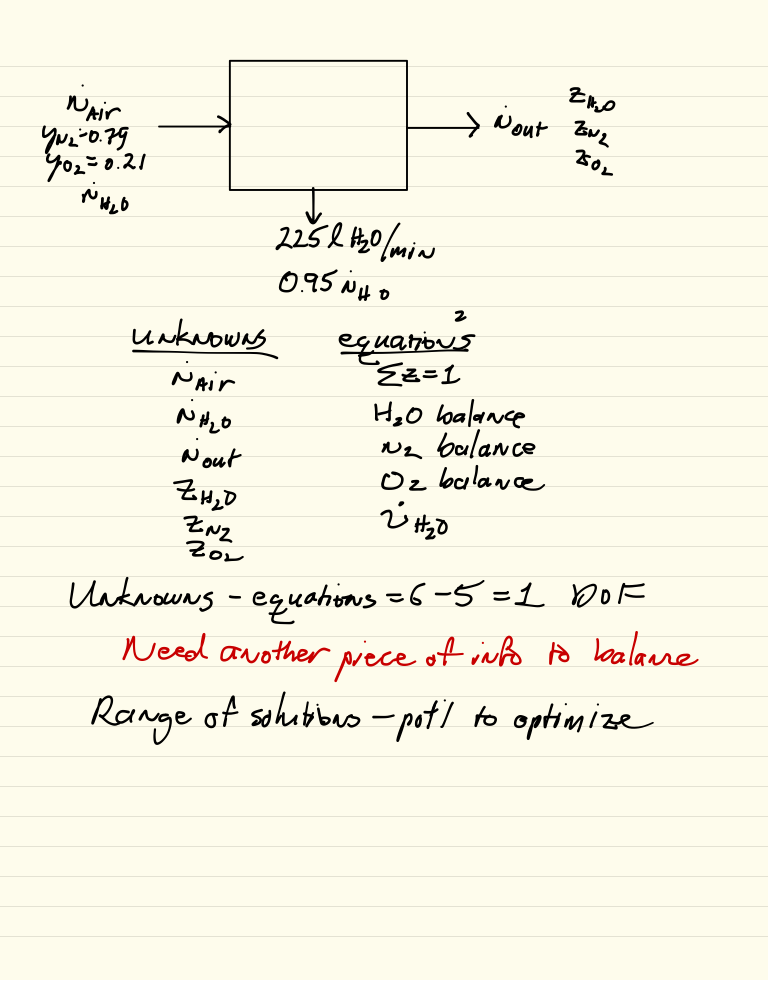 ṅAir
yN2=0.79
yO2=0.21
ṅH2O
ṅout
zH2O
zN2
zO2
225 l H2O/min
0.95 ṅH2O
unknowns
ṅAir
ṅH2O
ṅout
zH2O
zN2
zO2
equations
Σz=1
H2O balance
N2 balance
O2 balance
H2O
Unknowns - equations = 6 - 5 = 1 DoF
Need another piece of info to balance
Range of solutions - pot'l to optimize